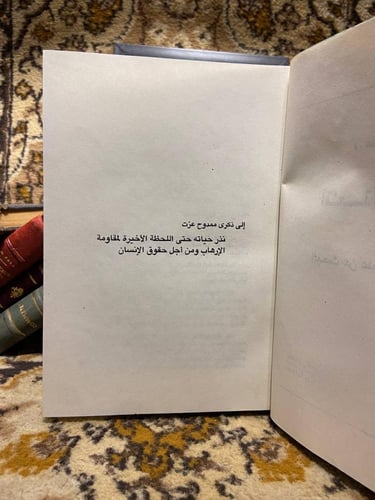 إلى ذكرى ممدوح عزت
نذر حياته حتى اللحظة الأخيرة لمقاومة
الإرهاب ومن أجل حقوق الإنسان